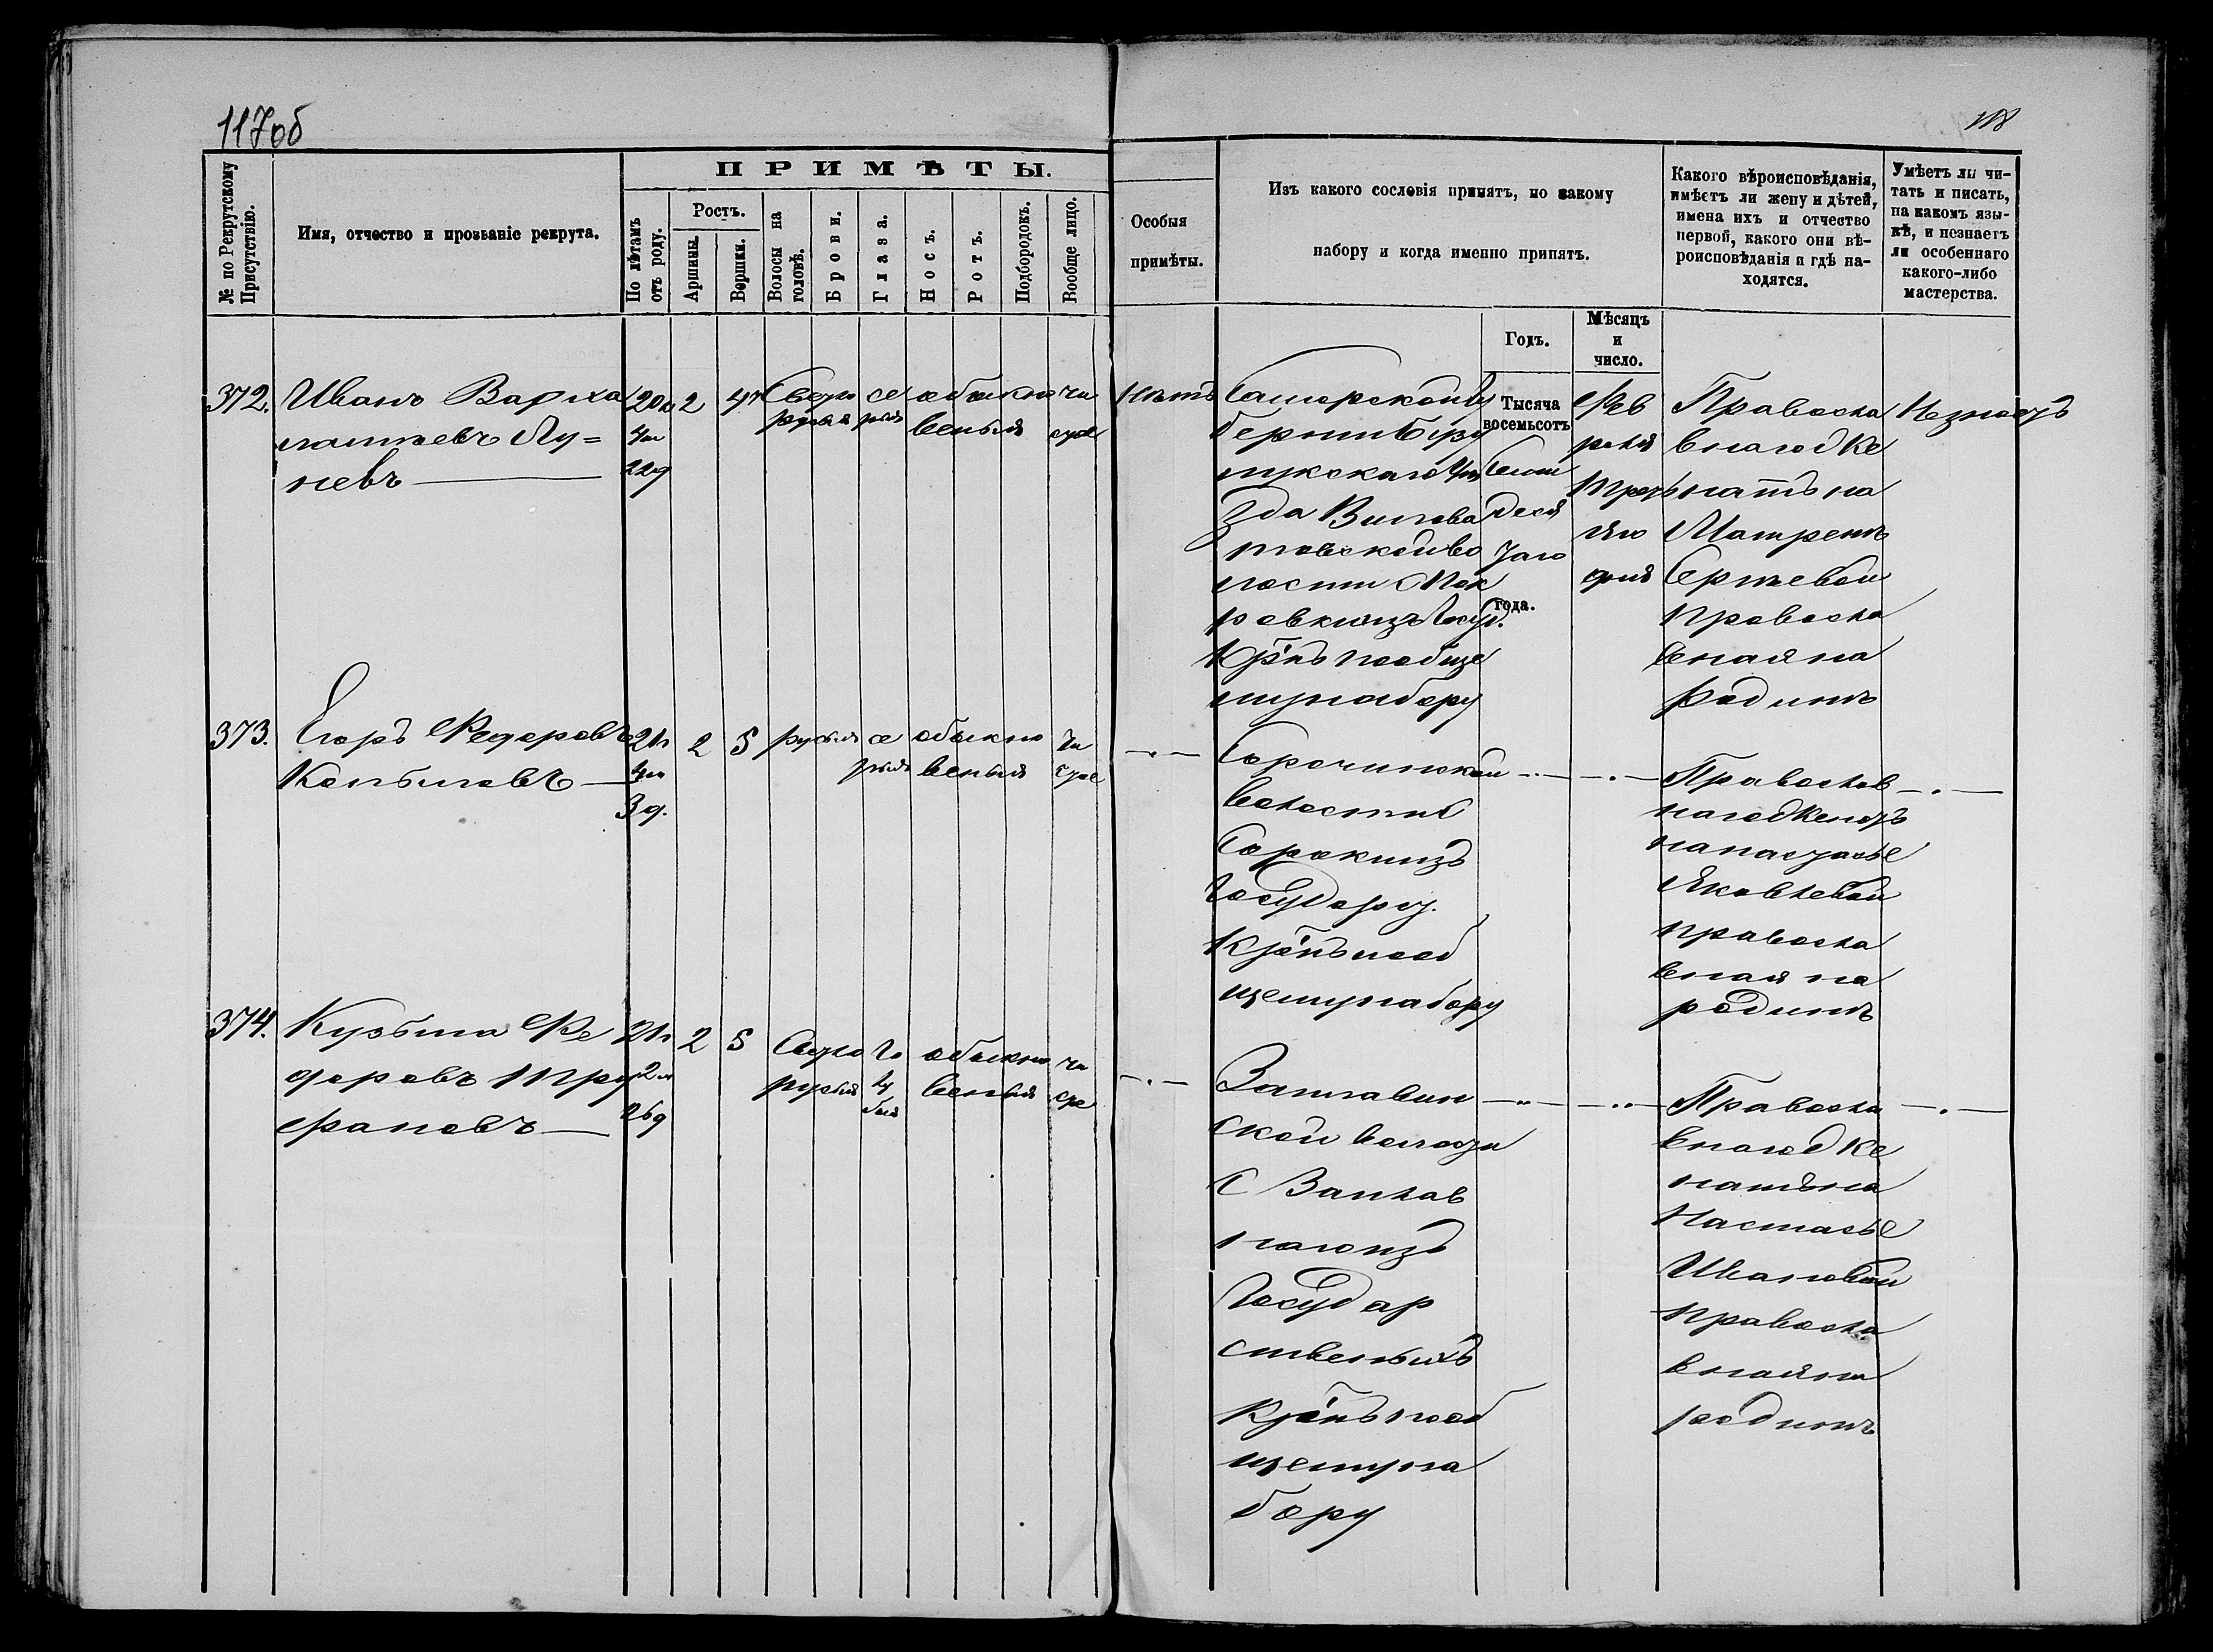 117об
118
№ по Рекрутскому Присутствію.
Имя, отчество и прозваніе рекрута.
ПРИМѢТЫ.
По лѣтамъ отъ роду.
Ростъ.
Аршины.
Вершки.
Волосы на головѣ.
Брови.
Глаза.
Носъ.
Ротъ.
Подбородокъ.
Вообще лицо.
Особыя примѣты.
Изъ какого сословія принятъ, по какому
набору и когда именно принятъ.
Какого вѣроисповѣданія,
имѣетъ ли жену и дѣтей,
имена ихъ и отчество
первой, какого они вѣ-
роисповѣданія и гдѣ на-
ходятся.
Умѣетъ ли чи-
тать и писать,
на какомъ язы-
кѣ, и незнаетъ
ли особеннаго
какого-либо
мастерства.
Годъ.
Мѣсяцъ
и
число.
372.
Иванъ Варха
лампевъ Лу=
невъ
20л
4м
22д
2
4
Светло
русыя
се
рыя
обыкно
веныя
чи
стое
Нѣтъ
Самарской Гу
берніи Бузу
лукскаго Уѣ
зда
волости
Кр҃нъ пообще
му набору
Тысяча
восемьсотъ
семь
деся
таго
года.
Фев
раля
третъ
яго
дня
Правосла
внаго Же
натъ на
Матренѣ
Сергѣевой
правосла
вная на
родинѣ
Незнаетъ
373.
Егоръ Федоровъ
Копыловъ
21л
4м
3д.
2
5
русыя
се
рыя
обыкно
веныя
чи
стое
Сорочинской
волости С
Сорокинъ
Государст.
Кр҃нъ пооб
щему набору
Православ
наго Женатъ
на Настасье
Яковлевой
правосла
вная на
родинѣ
374.
Кузьма Фе
доровъ Тру
фановъ
21л
2м
26д
2
5
Светло
русыя
го
лу
быя
обыкно
веныя
чи
стое
Заплавин
ской волости
С Заплав
наго изъ
Государ
ственыхъ
Кр҃нъ пооб
щему на
бору
Правосла
внаго Же
натъ на
Настасье
Ивановой
правосла
вная на
родинѣ